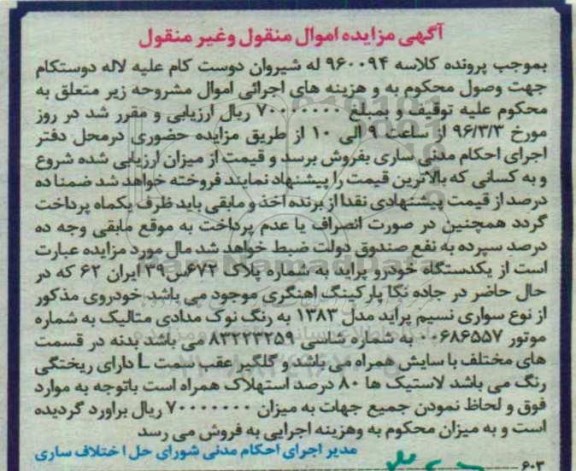 آگهی مزایده اموال منقول وغیر منقول
بموجب پرونده کلاسه ۹۶۰۰۹۴ له شیروان دوست کام علیه لاله دوستکام
جهت وصول محکوم به و هزینه های اجرائی اموال مشروحه زیر متعلق به
محکوم علیه توقیف و بمبلغ ۷۰۰۰۰۰۰۰ ریال ارزیابی و مقرر شد در روز
مورخ ۹۶/۳/۳ از ساعت ۹ الی ۱۰ از طریق مزایده حضوری درمحل دفتر
اجرای احکام مدنی ساری بفروش برسد و قیمت از میزان ارزیابی شده شروع
و به کسانی که بالاترین قیمت را پیشنهاد نمایند فروخته خواهد شد ضمنا ده
درصد از قیمت پیشنهادی نقدا از برنده اخذ و مابقی باید ظرف یکماه پرداخت
گردد همچنین در صورت انصراف یا عدم پرداخت به موقع مابقی وجه ده
درصد سپرده به نفع صندوق دولت ضبط خواهد شد مال مورد مزایده عبارت
است از یکدستگاه خودرو پراید به شماره پلاک ۶۷۲س۳۹ ایران ۶۲ که در
حال حاضر در جاده نکا پارکینگ اهنگری موجود می باشد. خودروی مذکور
از نوع سواری نسیم پراید مدل ۱۳۸۳ به رنگ نوک مدادی متالیک به شماره
موتور ۰۰۶۸۶۵۵۷ به شماره شاسی ۸۳۲۲۳۲۵۹ می باشد بدنه در قسمت
های مختلف با سایش همراه می باشد و گلگیر عقب سمت L دارای ریختگی
رنگ می باشد لاستیک ها ۸۰ درصد استهلاک همراه است باتوجه به موارد
فوق و لحاظ نمودن جمیع جهات به میزان ۷۰۰۰۰۰۰۰ ریال براورد گردیده
است و به میزان محکوم به وهزینه اجرایی به فروش می رسد
مدیر اجرای احکام مدنی شورای حل اختلاف ساری
۶۰۳